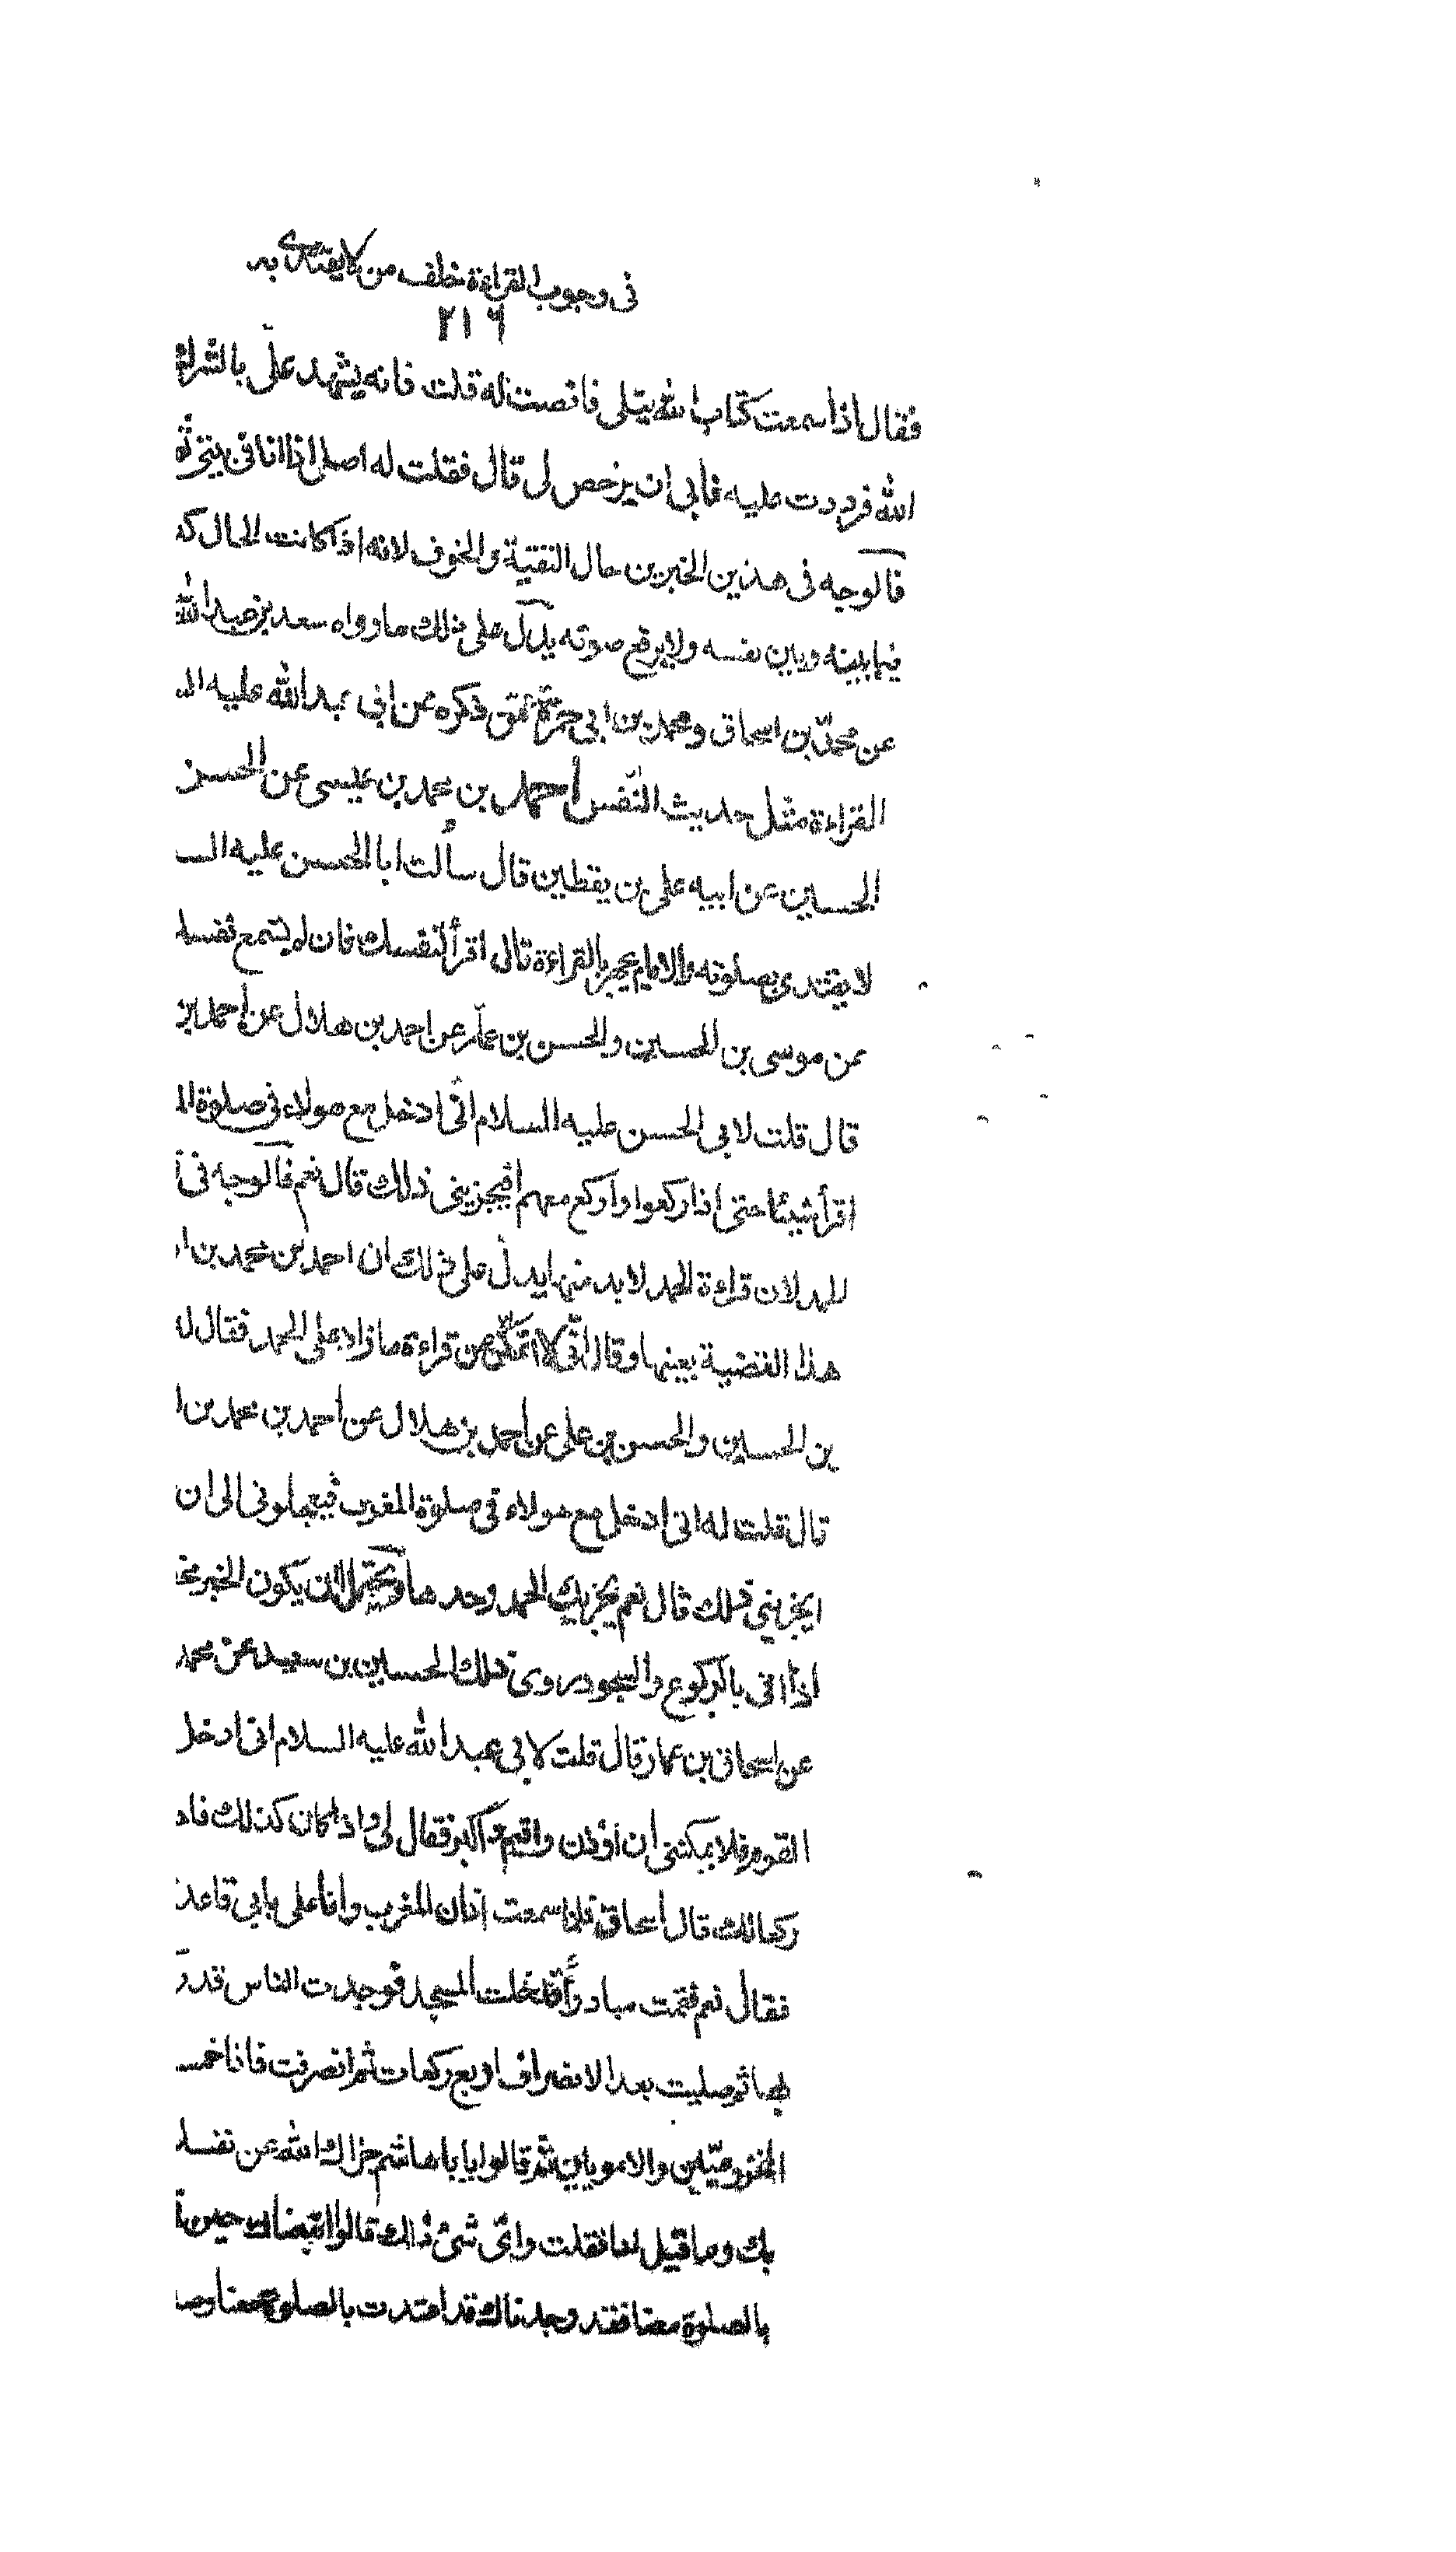 فى وجوب القراءة خلف من لا يقتدى به
٢١٦
فقال اذا سمعت كتاب الله يتلى فانصت له قلت فانه يشهد علىّ بالشرك
الله فرددت عليه فابى ان يرخص لى قال فقلت له اصلى اذا انا فى بيتى ثم
فالوجه فى هذين الخبرين حال التقية والخوف لانه اذا كانت الحال كذ
فيما بينه وبين نفسه ولا يرفع صوته يدل على ذلك ما رواه سعد بن عبد الله
عن محمد بن اسحاق ومحمد بن ابى حمزة عمن ذكره عن ابى عبد الله عليه الس
القراءة مثل حديث النفس احمد بن محمد بن عيسى عن الحسن
الحسين عن ابيه على بن يقطين قال سألت ابا الحسن عليه الس
لا يقتدى بصلوته والامام يجهر بالقراءة قال اقرأ لنفسك فان لم يسمع نفسك
عن موسى بن الحسين والحسن بن على عن احمد بن هلال عن احمد بن
قال قلت لابى الحسن عليه السلام انى ادخل مع هولاء فى صلوة الم
اقرأ شيئا حتى اذا ركعوا واركع معهم افيجزينى ذلك قال نعم فالوجه فى
الحمد لان قراءة الحمد لا بد منها يدل على ذلك ان احمد بن محمد بن ا
هذا القضية بعينها وقال انى لا اتمكن من قراءة ما زاد على الحمد فقال ل
بن الحسين والحسن بن على عن احمد بن هلال عن احمد بن محمد بن ا
قال قلت له انى ادخل مع هولاء فى صلوة المغرب فيعجلونى الى ان
ايجزينى ذلك قال نعم يجزيك الحمد وحدها ويحتمل ان يكون الخبر مخ
اذا اتى بالركوع والسجود روى ذلك الحسين بن سعيد عن محمد
عن اسحاق بن عمار قال قلت لابى عبد الله عليه السلام انى ادخل
القوم فلا يمكننى ان اوذن واقيم واكبر فقال لى واذا كان كذلك فاد
ركعاتك قال اسحاق فلما سمعت اذان المغرب وانا على بابى قاعد
فقال نعم فقمت مبادرا فدخلت المسجد فوجدت الناس قد ر
بها ثم صليت بعد الانصراف اربع ركعات ثم انصرفت فاذا خمسة
المخزوميين والامويين ثم قالوا يا با هاشم جزاك الله عن نفسك
بك وما قيل لنا فقلت واى شئ ذاك قالوا اتبعناك حين
بالصلوة معنا فقد وجدناك قد اعتدت بالصلوة معنا وص